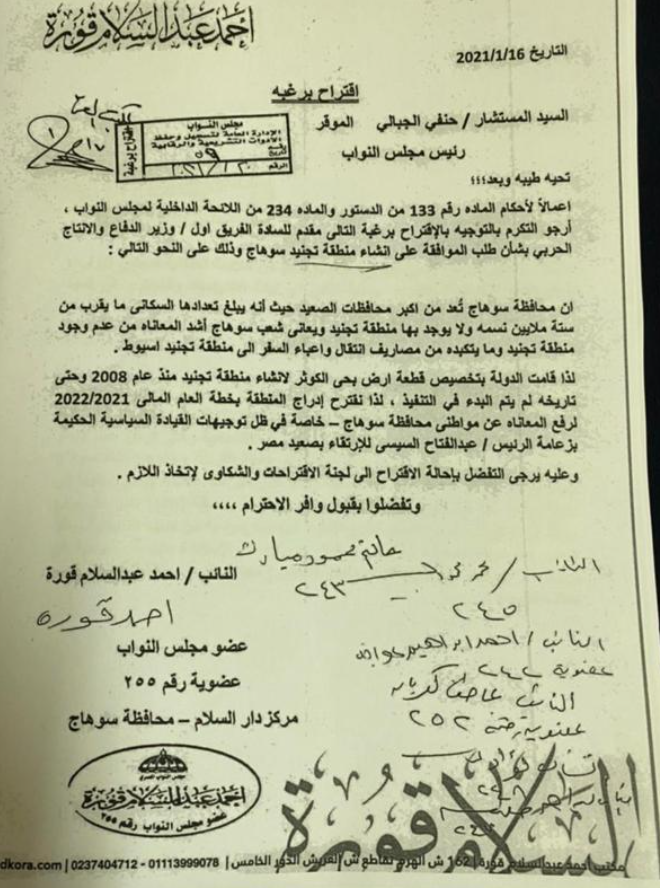 احمد عبد السلام قورة
التاريخ 2021/1/16
اقتراح برغبه
السيد المستشار / حنفي الجبالي الموقر
رئيس مجلس النواب
مجلس النواب
الإدارة العامة لتسجيل وحفظ
الأدوات التشريعية والرقابية
اقتراح برغبة
تحيه طيبه وبعد؛؛؛
اعمالاً لأحكام الماده رقم 133 من الدستور والماده 234 من اللائحة الداخلية لمجلس النواب ،
أرجو التكرم بالتوجيه بالإقتراح برغبة التالى مقدم للسادة الفريق اول / وزير الدفاع والانتاج
الحربي بشأن طلب الموافقة على انشاء منطقة تجنيد سوهاج وذلك على النحو التالي :
ان محافظة سوهاج تُعد من اكبر محافظات الصعيد حيث أنه يبلغ تعدادها السكانى ما يقرب من
ستة ملايين نسمه ولا يوجد بها منطقة تجنيد ويعانى شعب سوهاج أشد المعاناه من عدم وجود
منطقة تجنيد وما يتكبده من مصاريف انتقال واعباء السفر الى منطقة تجنيد اسيوط .
لذا قامت الدولة بتخصيص قطعة ارض بحى الكوثر لانشاء منطقة تجنيد منذ عام 2008 وحتى
تاريخه لم يتم البدء في التنفيذ ، لذا نقترح إدراج المنطقة بخطة العام المالى 2022/2021
لرفع المعاناه عن مواطنى محافظة سوهاج – خاصة في ظل توجيهات القيادة السياسية الحكيمة
بزعامة الرئيس / عبدالفتاح السيسى للإرتقاء بصعيد مصر .
وعليه يرجى التفضل بإحالة الاقتراح الى لجنة الاقتراحات والشكاوى لإتخاذ اللازم .
وتفضلوا بقبول وافر الاحترام ،،،،
هاتم محمود مبارك
٢٤٣
٢٤٥
النائب / احمد ابراهيم
عضوية ٢٤٢
النائب
عضوية رقم ٢٥٢
النائب / احمد عبدالسلام قورة
احمد قورة
عضو مجلس النواب
عضوية رقم ٢٥٥
مركز دار السلام – محافظة سوهاج
مجلس النواب المصرى
احمد عبد السلام قورة
عضو مجلس النواب رقم ٢٥٥
السلام قورة
مكتب احمد عبدالسلام قورة | 162 ش الهرم تقاطع ش العريش الدور الخامس | 01113999078 - 0237404712 | dkora.com